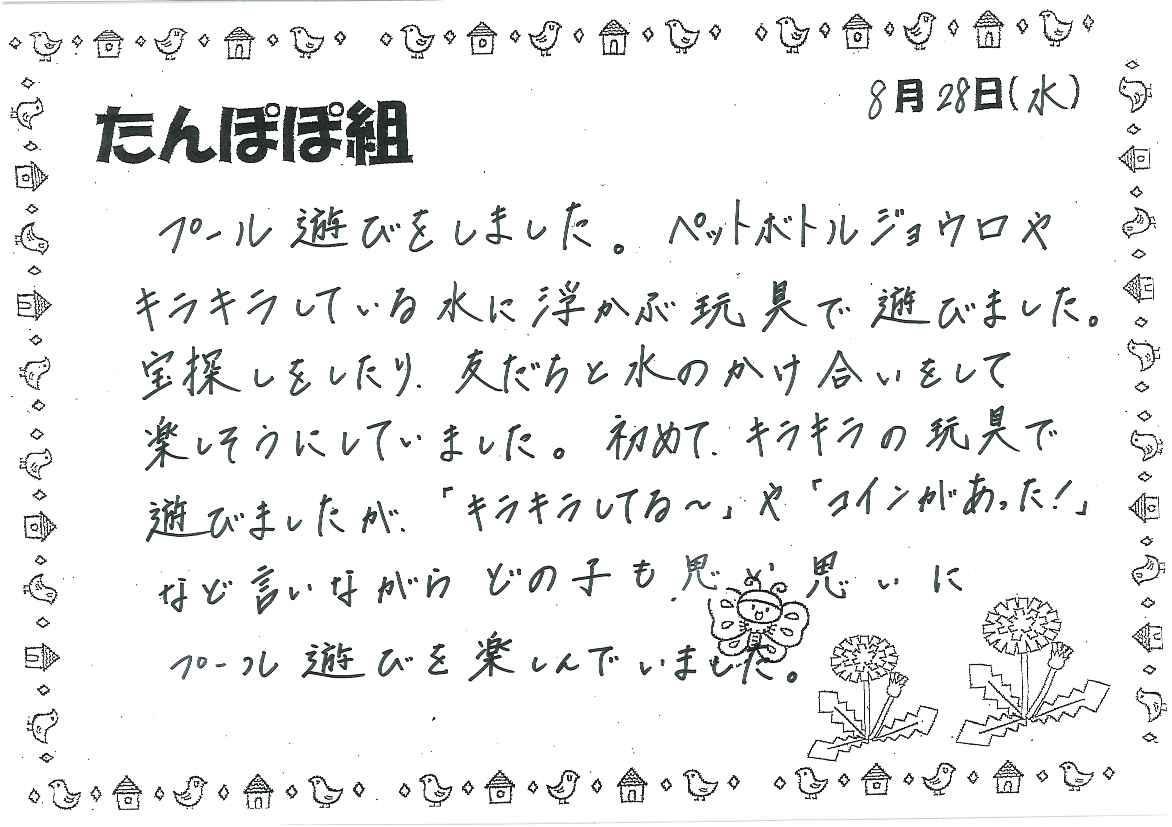 8月28日(水)
たんぽぽ組
プール遊びをしました。ペットボトルジョウロや
キラキラしている水に浮かぶ玩具で遊びました。
宝探しをしたり、友だちと水のかけ合いをして
楽しそうにしていました。初めて、キラキラの玩具で
遊びましたが、「キラキラしてる～」や「コインがあった!」
など言いながらどの子も思い思いに
プール遊びを楽しんでいました。